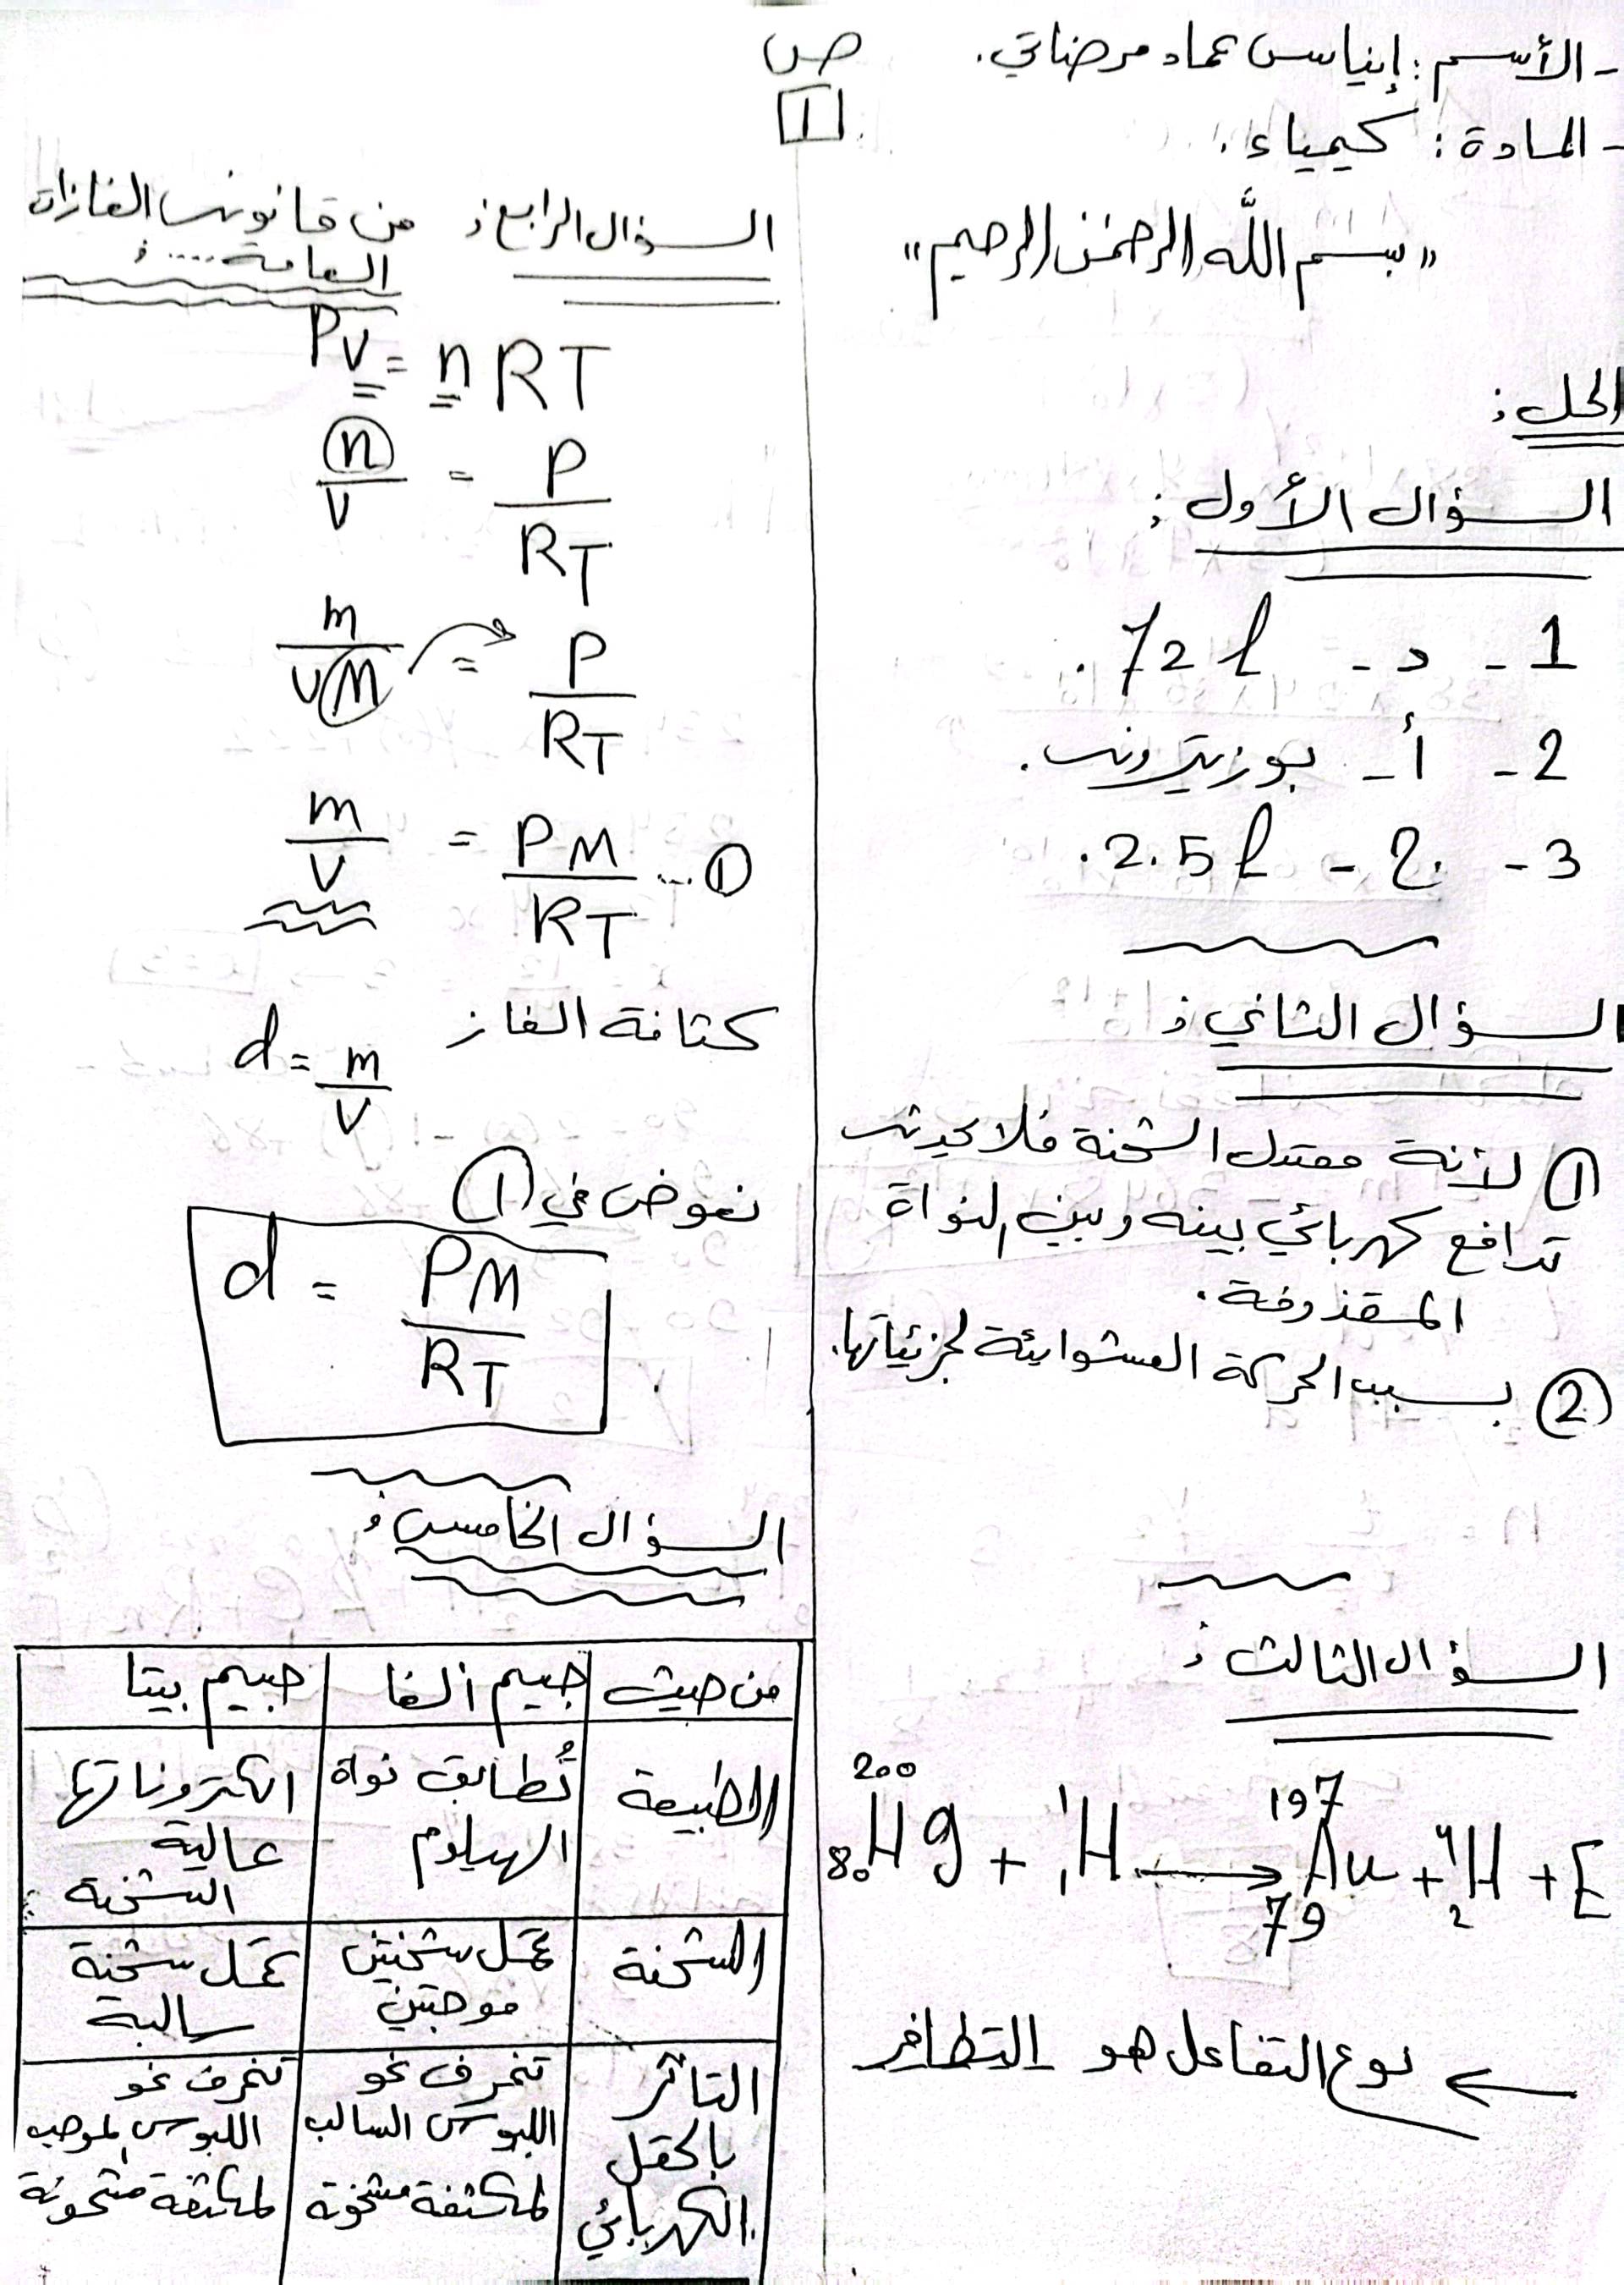 - الأسم : إيناس عماد مرضاتي.
- المادة : كيمياء .
ص
1
" بسم الله الرحمن الرحيم "
الحل :
السؤال الأول :
1 - د - 72 l .
2 - أ - بوزيترون .
3 - ج - 2.5 l .
السؤال الثاني :
① لأنة معتدل الشحنة فلا يحدث
تدافع كهربائي بينه وبين النواة
المقذوفة .
② بسبب الحركة العشوائية لجزيئاتها .
السؤال الثالث :
²⁰⁰₈₀Hg + ¹₁H → ¹⁹⁷₇₉Au + ⁴₂H + E
← نوع التفاعل هو التطافر
السؤال الرابع : من قانون الغازات
العامة .... :
PV = n RT
n/V = P/RT
m/VM = P/RT
m/V = PM/RT ... ①
كثافة الغاز d = m/V
نعوض في ①
d = PM/RT
السؤال الخامس :
من حيث | جسيم ألفا | جسيم بيتا
الطبيعة | تُطابق نواة الهيليوم | الكتروناتها عالية الشحنة
الشحنة | تحمل شحنتين موجبتين | تحمل شحنة سالبة
التأثر بالحقل الكهربائي . | تنحرف نحو اللبوس السالب لمكثفة مشحونة | تنحرف نحو اللبوس الموجب لمكثفة مشحونة